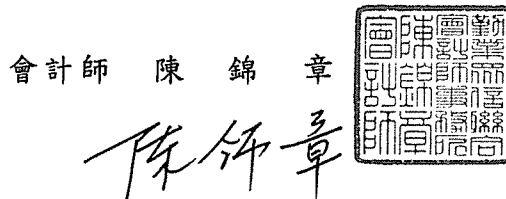 會計師 陳 錦 章
陳錦章
勤業眾信聯合
會計師事務所
陳錦章
會計師